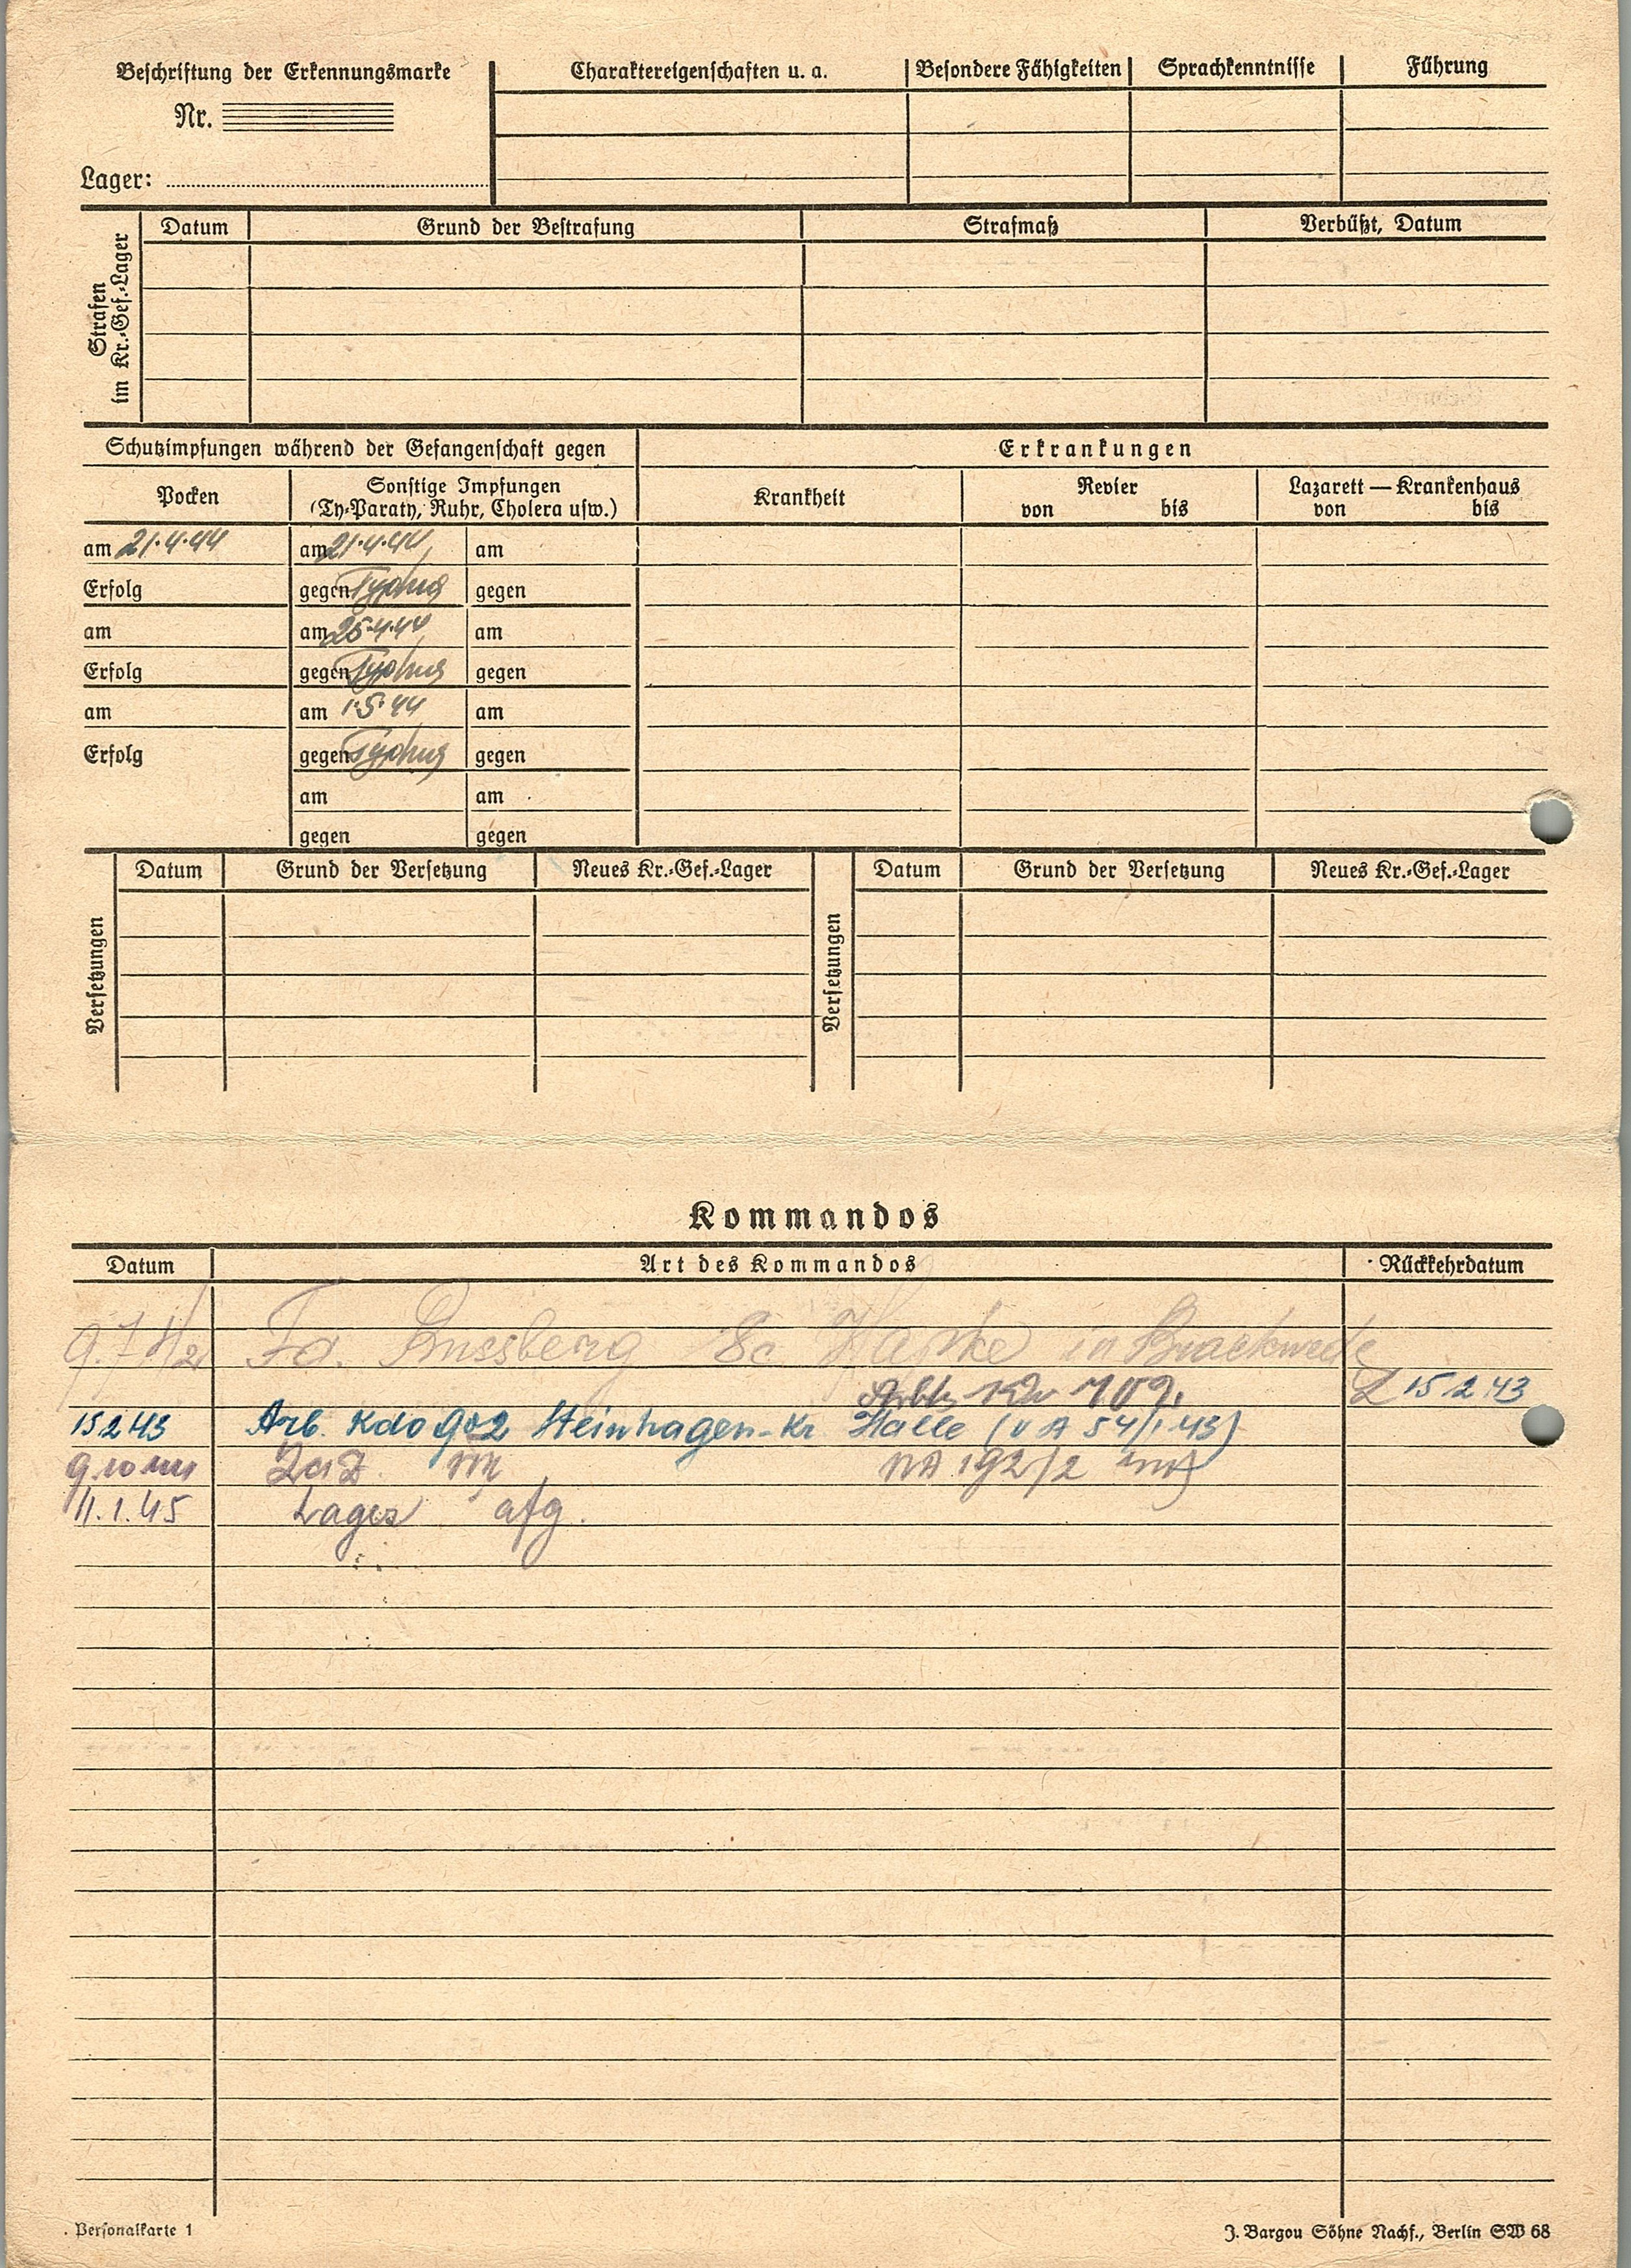 Beschriftung der Erkennungsmarke
Nr.
Lager:
Charaktereigenschaften u. a. Besondere Fähigkeiten Sprachkenntnisse Führung
Strafen
im Kr.-Gef.-Lager
Datum Grund der Bestrafung Strafmaß Verbüßt, Datum
Schutzimpfungen während der Gefangenschaft gegen Erkrankungen
Pocken
Sonstige Impfungen
(Ty-Paraty, Ruhr, Cholera usw.)
Krankheit
Revier
von bis
Lazarett — Krankenhaus
von bis
am 21.4.44 am 21.4.44 am
Erfolg gegen Typhus gegen
am am 25.4.44 am
Erfolg gegen Typhus gegen
am am 1.5.44 am
Erfolg gegen Typhus gegen
am am
gegen gegen
Versetzungen
Datum Grund der Versetzung Neues Kr.-Gef.-Lager
Versetzungen
Datum Grund der Versetzung Neues Kr.-Gef.-Lager
Kommandos
Datum Art des Kommandos Rückkehrdatum
9.7.42 Fa. in Brackwede
709. 15.2.43
15.2.43 Arb. Kdo 902 Steinhagen-Kr Halle (V A 54/1.43)
192/2
11.1.45 Lager
Personalkarte 1
J. Bargou Söhne Nachf., Berlin SW 68